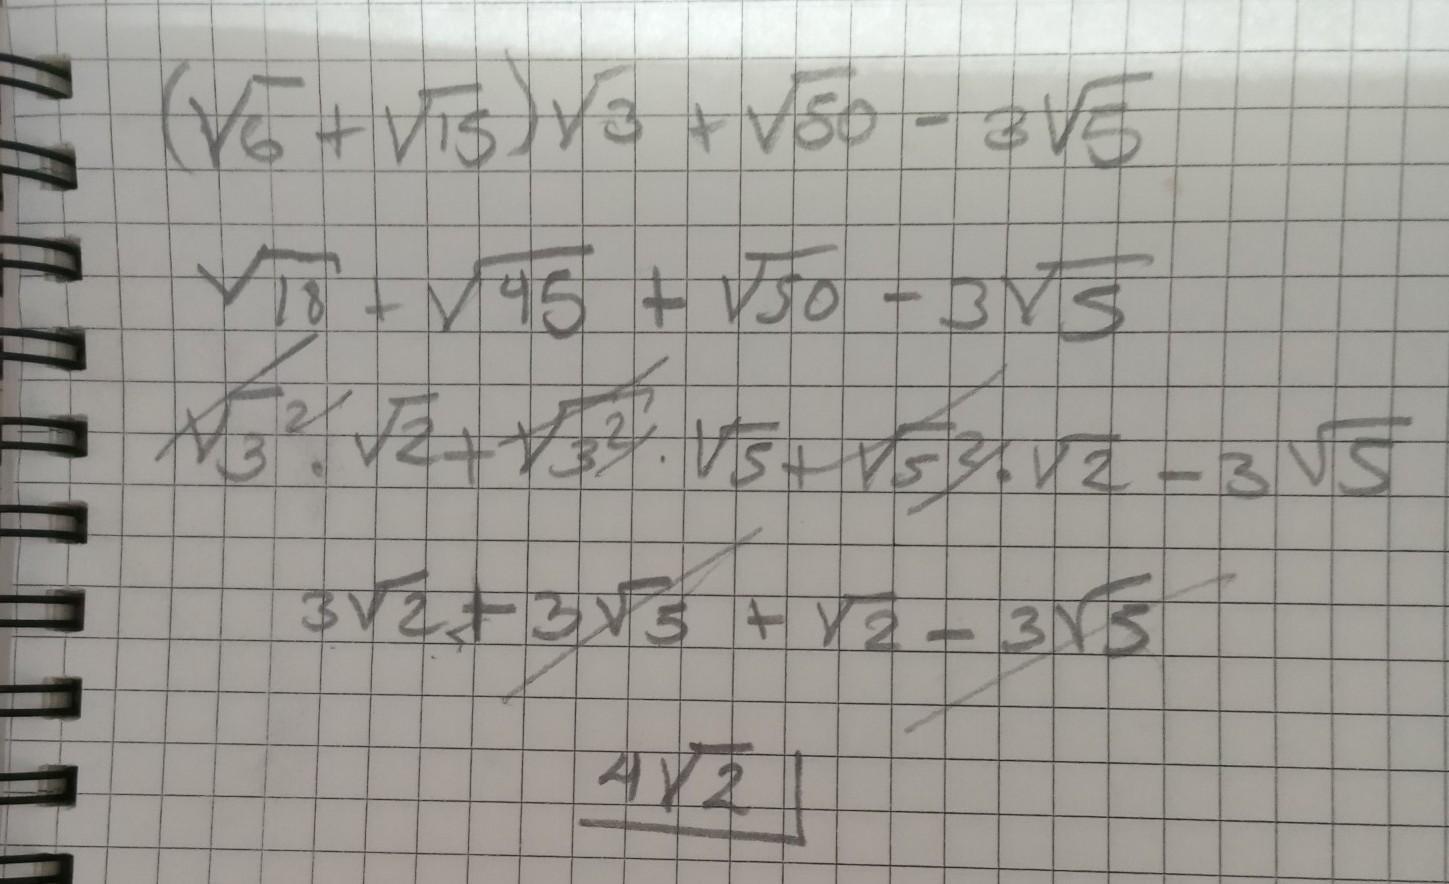 (√6 + √15)√3 + √50 - 3√5
√18 + √45 + √50 - 3√5
√3² · √2 + √3² · √5 + √5² · √2 - 3√5
3√2 + 3√5 + √2 - 3√5
4√2